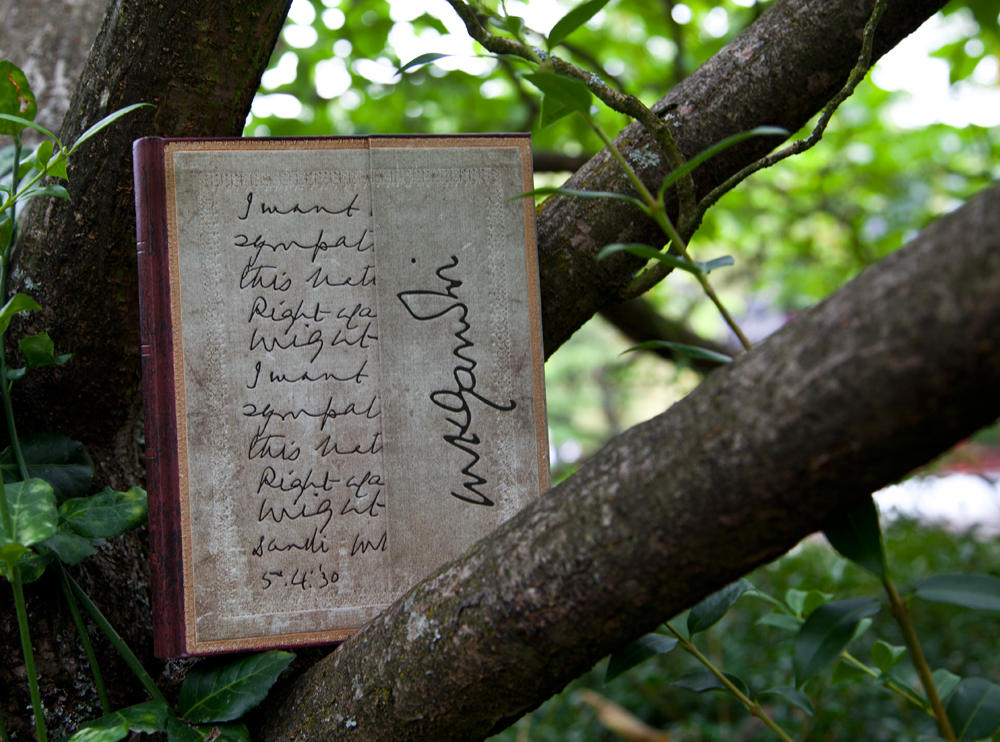 I want
sympat
this bat
Right aga
Might
I want
sympat
this bat
Right aga
Might
Sandi MK
5.4.'30
MKGandhi